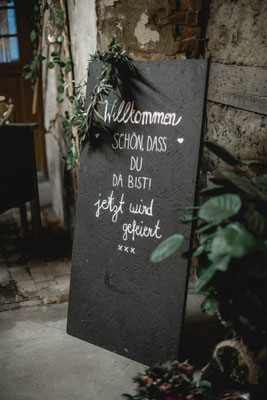 Willkommen
SCHÖN, DASS
DU
DA BIST!
jetzt wird
gefeiert
xxx